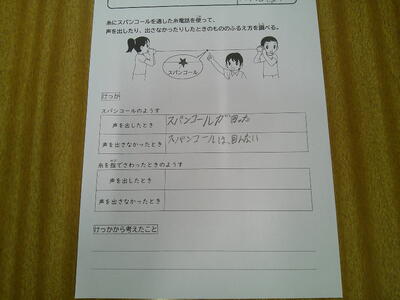 糸にスパンコールを通した糸電話を使って、
声を出したり、出さなかったりしたときのもののふるえ方を調べる。
スパンコール
けっか
スパンコールのようす
声を出したとき スパンコールが回った
声を出さなかったとき スパンコールは、回んない
糸を指でさわったときのようす
声を出したとき
声を出さなかったとき
けっかから考えたこと